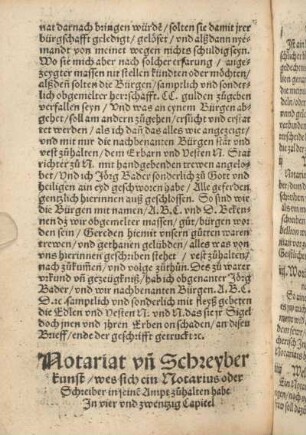 nat darnach bringen würde̅ / solten sie damit jrer
bürgschafft geledigt / gelöset / vnd alßdann nye-
mandt von meinet wegen nichts schuldig seyn.
Wo sie mich aber nach solcher erfarung / ange-
zeygter massen nit stellen kündten oder möchten /
alßdeñ solten die Bürgen / samptlich vnd sonder-
lich obgemelter herrschafft. CC. gulden zůgeben
verfallen seyn / Vnd was an eynem Bürgen ab-
gehet / soll am andern zůgehen / ersůcht vnd erstat
tet werden / als ich daň das alles wie angezeigt /
vnd mit mir die nachbenanten Bürgen stät vnd
vest zůhalten / dem Erbarn vnd Vesten N. Stat
richter zů N. mit handgebenden trewen angelobt
bet / Vnd ich Jörg Bader sonderlich zů Gott vnd
heiligen ain eyd geschworen habe / Alle geferden
gentzlich hierinnen auß geschlossen. So sind wir
die Bürgen mit namen / A. B. C. vnd D. Beken-
nen dz wir obgemelter massen / güt / bürgen wor
den seyn / Gereden hiemit vnsern gůtten waren
trewen / vnd gethanen gelübden / alles was von
vns hierinnen geschriben stehet / vest zůhalten /
nach zůkum̅en / vnd volge zůthůn. Des zů warer
vrkund vň gezeugknuß / hab ich obgenanter Jörg
Bader / vnd wir nachbenanten Bürgen. A. B. C.
D. ꝛc. samptlich vnd sonderlich mit fleyß gebeten
die Edlen vnd Vesten N. vnd N. das sie jr Sigel
doch jnen vnd jhren Erben on schaden / an disen
Brieff / ende der geschrifft getruckt ꝛc.
Notariat vň Schreyber
kunst / wes sich ein Notarius oder
Schreiber in seine̅ Ampt zůhalten habe
In vier vnd zwentzig Capitel